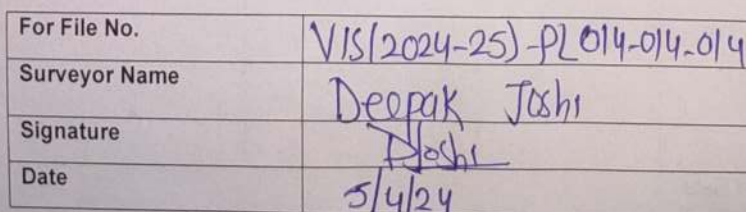 For File No. VIS(2024-25)-PL014-014-014
Surveyor Name Deepak Joshi
Signature DJoshi
Date 5/4/24